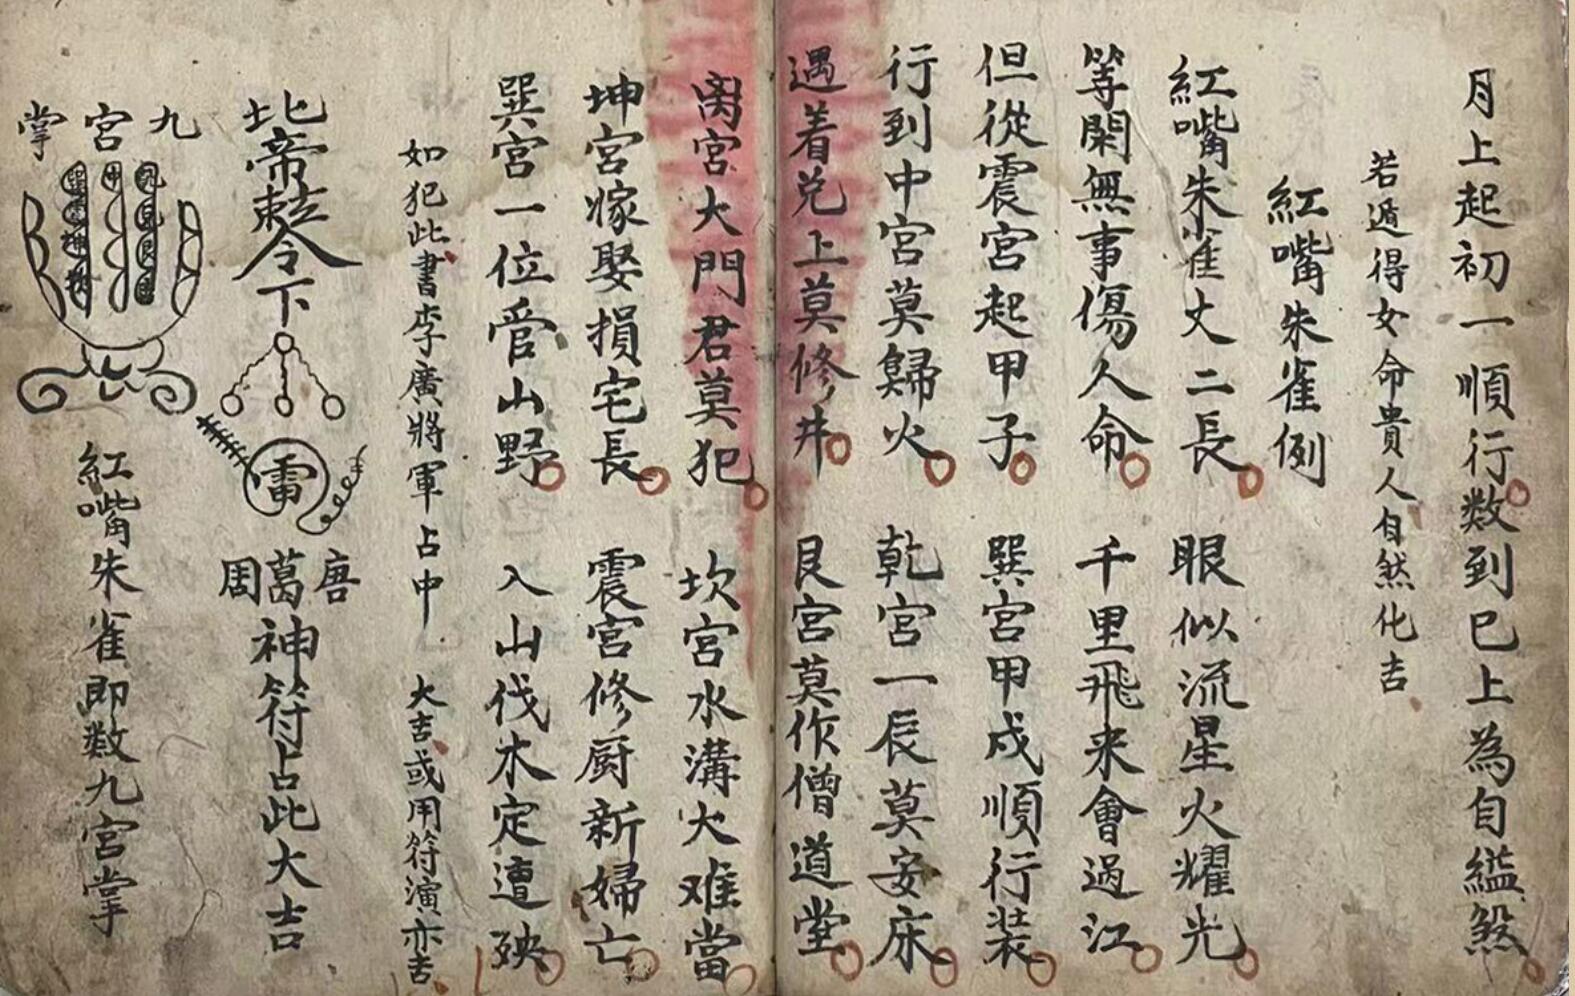 月上起初一順行数到巳上為自縊煞
若遁得女命貴人自然化吉
紅嘴朱雀例
紅嘴朱雀丈二長 眼似流星火耀光
等閑無事傷人命 千里飛来會過江
但從震宮起甲子 巽宮甲戌順行装
行到中宮莫歸火 乾宮一辰莫安床
遇着兑上莫修井 艮宮莫作僧道堂
离宮大門君莫犯 坎宮水溝大难當
坤宮嫁娶損宅長 震宮修厨新婦亡
巽宮一位管山野 入山伐木定遭殃
如犯此書李廣將軍占中 大吉或用符演亦吉
北帝敕令下
雷
唐葛周神符占此大吉
九宮掌
紅嘴朱雀即数九宮掌